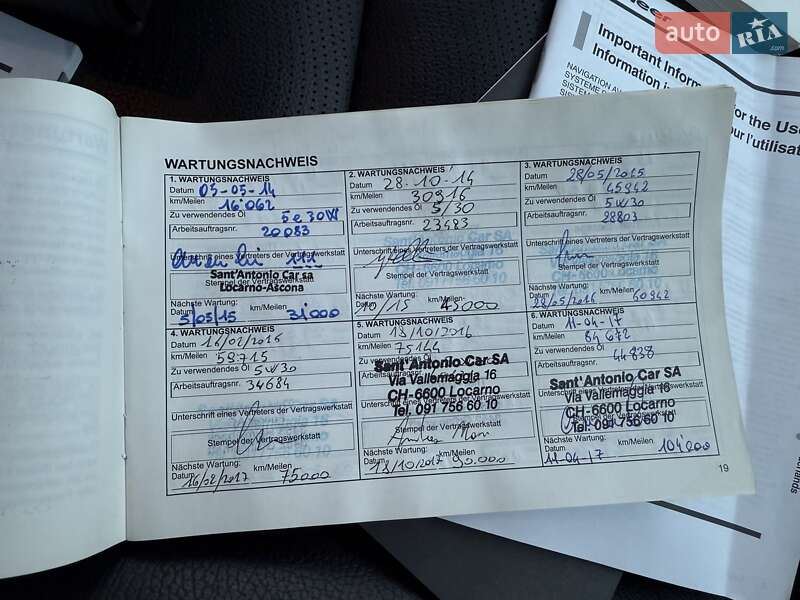 auto RIA.com
neer
Important Inform
Information i
for the Use
our l'utilisat
NAVIGATION AV
SYSTÈME
SISTEM
WARTUNGSNACHWEIS
1. WARTUNGSNACHWEIS
Datum 03-05-14
km/Meilen 16'062
Zu verwendendes Öl 5e30W
Arbeitsauftragsnr. 20083
Unterschrift eines Vertreters der Vertragswerkstatt
Sant'Antonio Car sa
Stempel der Vertragswerkstatt
Locarno-Ascona
Nächste Wartung: km/Meilen
Datum 5/05/15 31'000
2. WARTUNGSNACHWEIS
Datum 28-10-14
km/Meilen 30916
Zu verwendendes Öl 5/30
Arbeitsauftragsnr. 23483
Unterschrift eines Vertreters der Vertragswerkstatt
Stempel der Vertragswerkstatt
Nächste Wartung: km/Meilen
Datum 10/15 45000
3. WARTUNGSNACHWEIS
Datum 28/05/2015
km/Meilen 45942
Zu verwendendes Öl 5W30
Arbeitsauftragsnr. 28803
Unterschrift eines Vertreters der Vertragswerkstatt
Stempel der Vertragswerkstatt
Nächste Wartung: km/Meilen
Datum 28/05/2016 60942
4. WARTUNGSNACHWEIS
Datum 16/02/2016
km/Meilen 59715
Zu verwendendes Öl 5W30
Arbeitsauftragsnr. 34684
Unterschrift eines Vertreters der Vertragswerkstatt
Stempel der Vertragswerkstatt
Nächste Wartung: km/Meilen
Datum 16/02/2017 75000
5. WARTUNGSNACHWEIS
Datum 18/10/2016
km/Meilen 75144
Zu verwendendes Öl
Arbeitsauftragsnr.
Sant'Antonio Car SA
Via Vallemaggia 16
CH-6600 Locarno
Tel. 091 756 60 10
Unterschrift eines Vertreters der Vertragswerkstatt
Stempel der Vertragswerkstatt
Nächste Wartung: km/Meilen
Datum 18/10/2017 90.000
6. WARTUNGSNACHWEIS
Datum 11-04-17
km/Meilen 84672
Zu verwendendes Öl
Arbeitsauftragsnr. 44838
Sant'Antonio Car SA
Via Vallemaggia 16
CH-6600 Locarno
Tel. 091 756 60 10
Nächste Wartung: km/Meilen
Datum 11-04-17 104'000
19